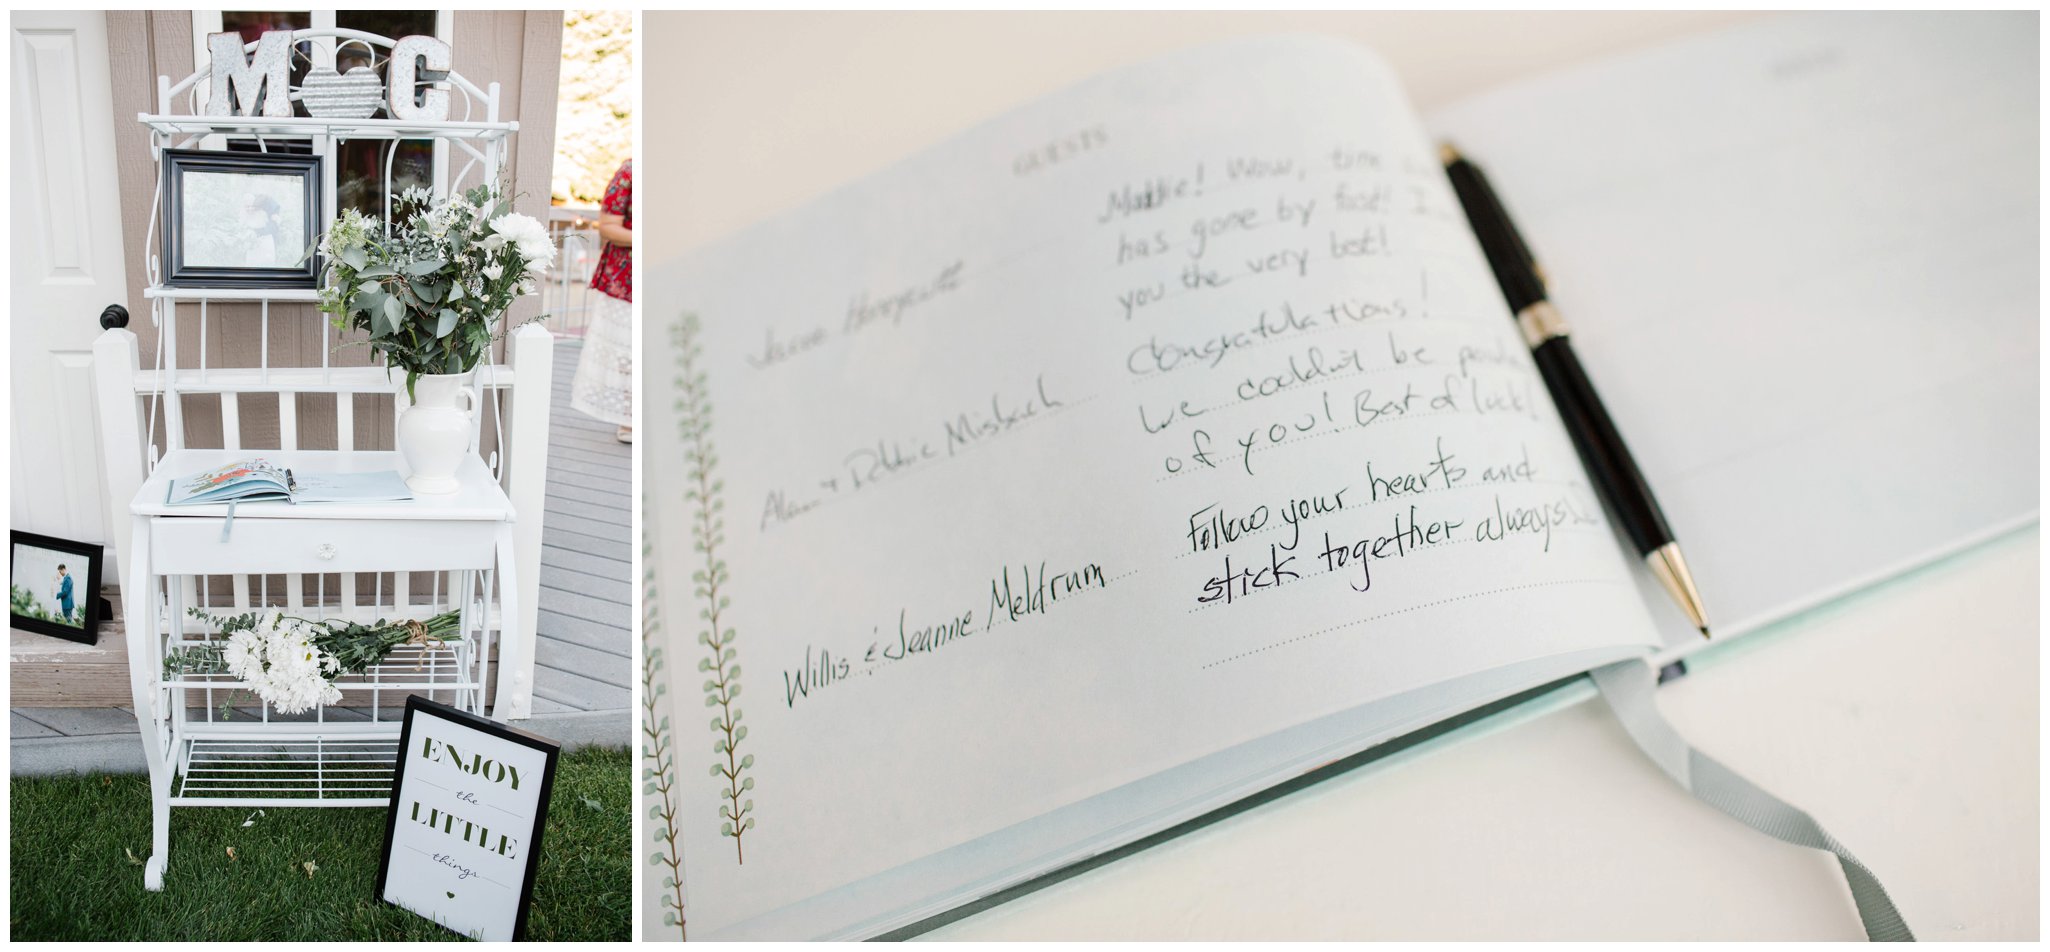 M C
ENJOY
the
LITTLE
things
GUESTS
Mattie! Wow, time
has gone by fast! I
you the very best!
Congratulations!
Alan + Debbie Misbach
We couldn't be
of you! Best of luck!
Willis & Jeanne Meldrum
Follow your hearts and
stick together always